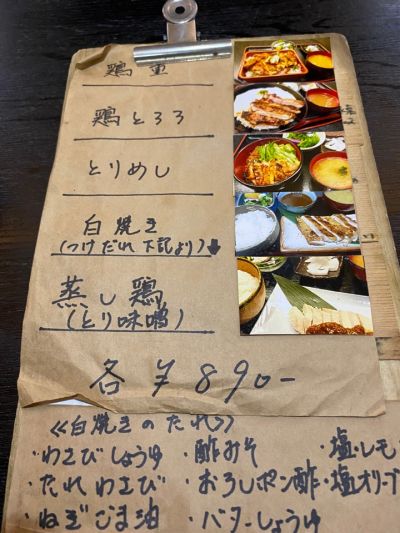 鶏重
鶏とろろ
とりめし
白焼き
(つけだれ下記より)⬇
蒸し鶏
(とり味噌)
各¥890-
≪白焼きのたれ≫
・わさびしょうゆ ・酢みそ ・塩・レモ
・たれわさび ・おろしポン酢 ・塩オリーブ
・ねぎごま油 ・バターしょうゆ